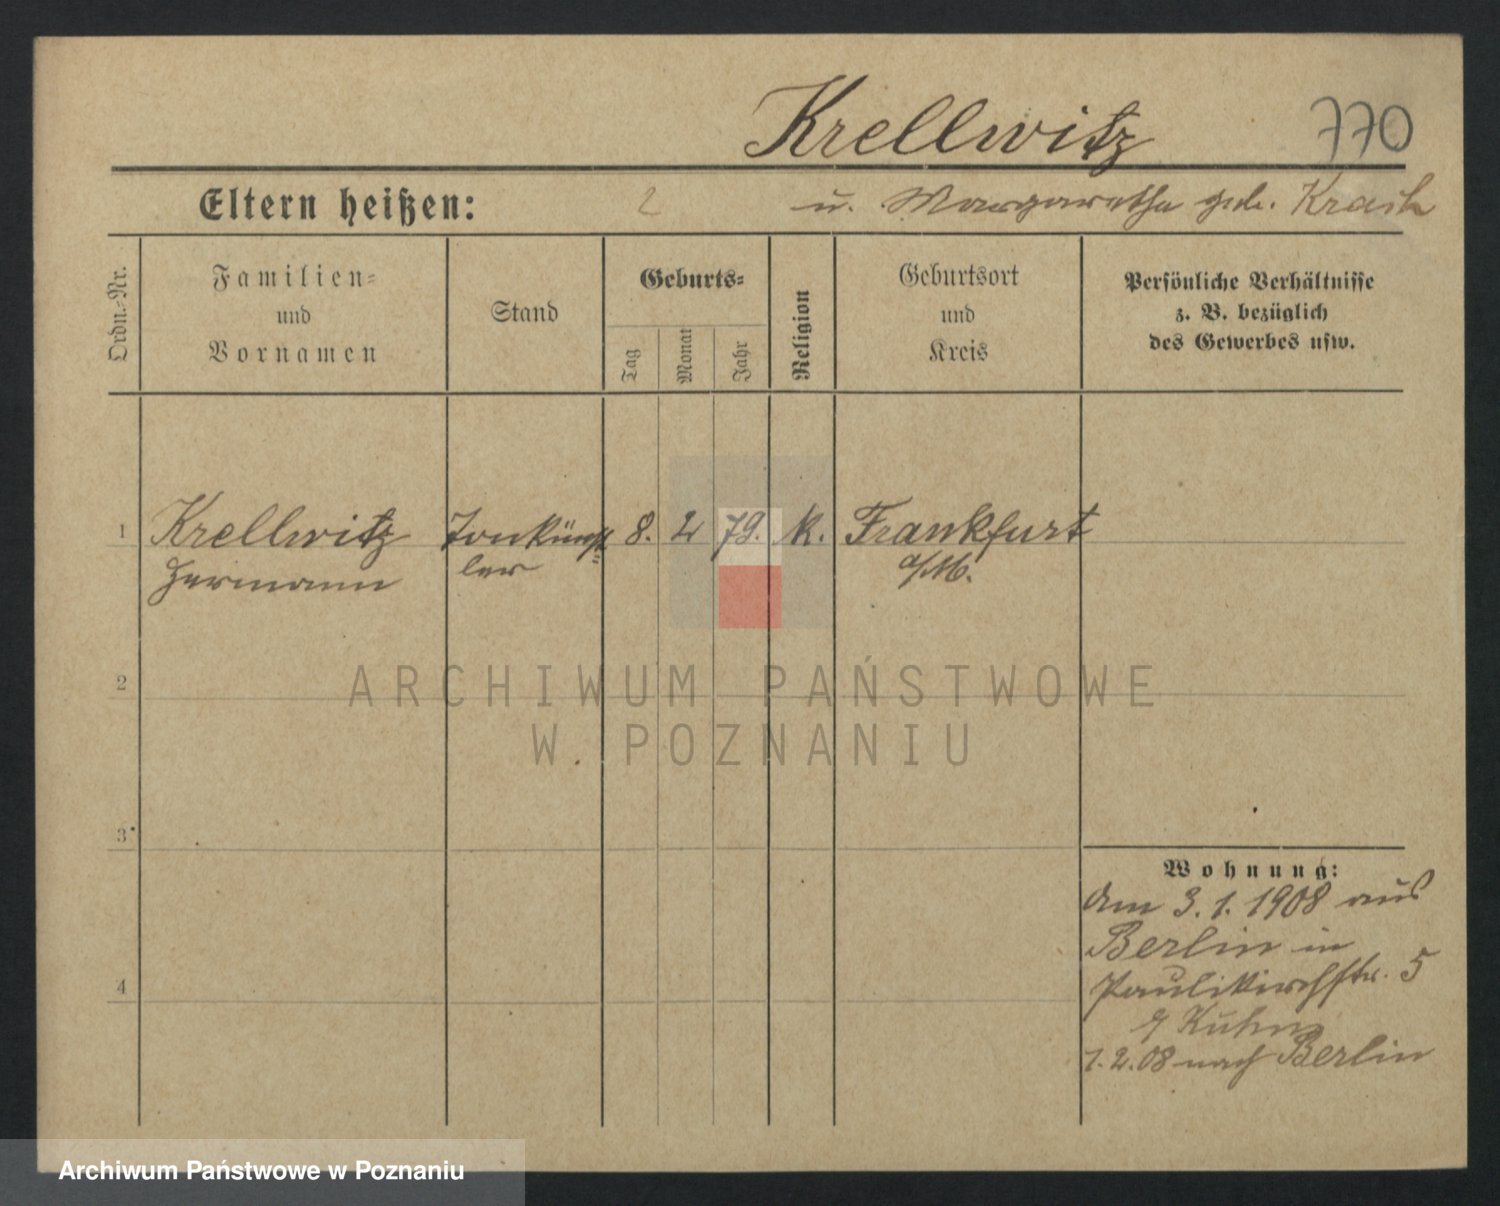 Krellwitz 770
Eltern heißen: 2 u. Margarethe geb.
Ordn.-Nr.
Familien-
und
Vornamen
Stand
Geburts-
Tag
Monat
Jahr
Religion
Geburtsort
und
Kreis
Persönliche Verhältnisse
z. B. bezüglich
des Gewerbes usw.
1 Krellwitz Tonkünst= 8. 2 79. k. Frankfurt
Hermann ler a/M.
2
ARCHIWUM PAŃSTWOWE
W POZNANIU
3
Wohnung:
Am 3.1.1908 aus
Berlin in
4
Paulikirchstr. 5
Kuhn
1.2.08 nach Berlin
Archiwum Państwowe w Poznaniu